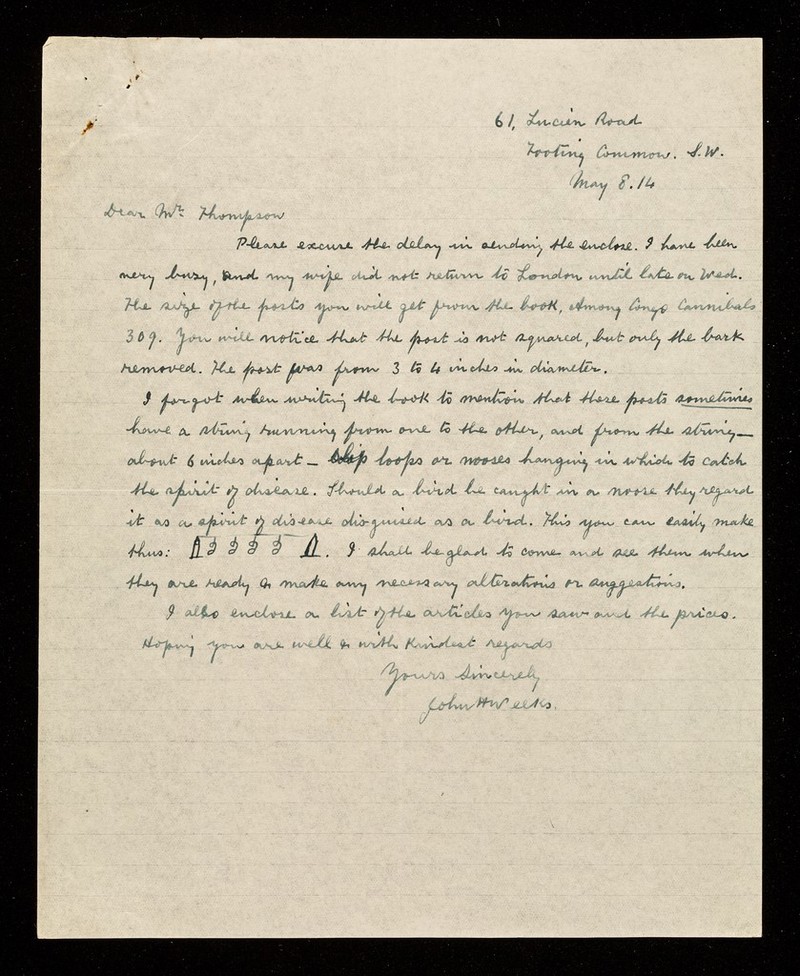 61, Lucien Road
Tooting Common. S.W.
May 8.14
Dear Mr Thompson
Please excuse the delay in sending the enclose. I have been
very busy, and my wife did not return to London until late on Wed.
The size of the posts you will get from the book, Among Congo Cannibals
309. You will notice that the post is not squared, but only the bark
removed. The post was from 3 to 4 inches in diameter.
I forgot when writing the book to mention that these posts sometimes
have a string running from one to the other, and from the string—
about 6 inches apart — slip loops or nooses hanging in which to catch
the spirit of disease. Should a bird be caught in a noose they regard
it as a spirit of disease disguised as a bird. This you can easily make
thus: . I shall be glad to come and see them when
they are ready & make any necessary alterations or suggestions.
I also enclose a list of the articles you saw and the prices.
Hoping you are well & with kindest regards
Yours Sincerely
John H Weeks.